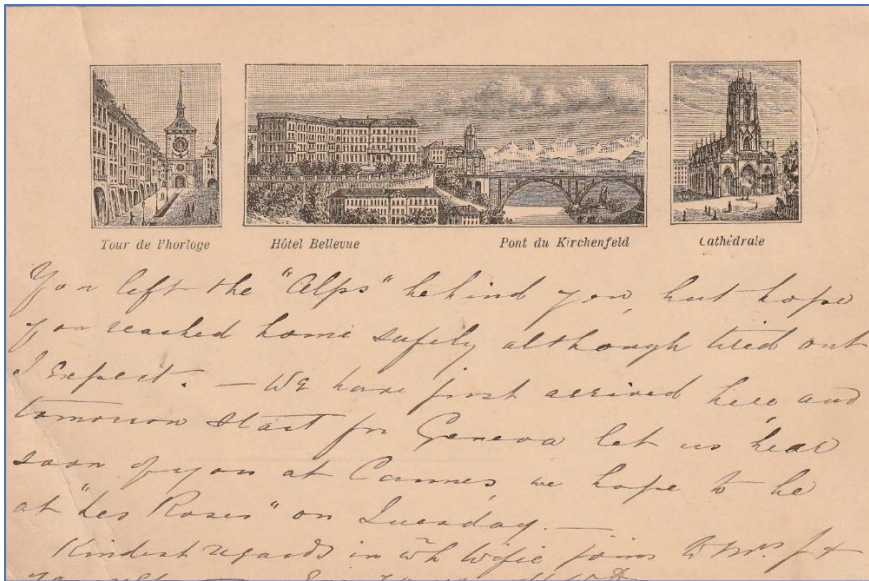 Tour de l'horloge
Hôtel Bellevue
Pont du Kirchenfeld
Cathédrale
You left the "Alps" behind you, but hope
you reached home safely although tired out
I expect. — We have just arrived here and
tomorrow start for Geneva let us hear
soon of you at Cannes, we hope to be
at "Les Roses" on Tuesday. —
Kindest regards in wh wifie joins to Mrs J +